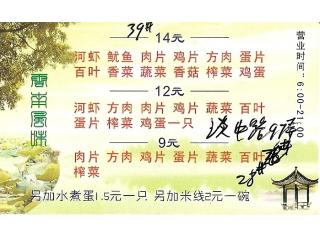 39#
14元
河虾 鱿鱼 肉片 鸡片 方肉 蛋片
百叶 香菜 蔬菜 香菇 榨菜 鸡蛋
12元
河虾 方肉 肉片 鸡片 蔬菜 百叶
蛋片 榨菜 鸡蛋一只
9元
方肉 肉片 鸡片 蛋片 蔬菜 百叶
榨菜
另加水煮蛋1.5元一只 另加米线2元一碗
雲南風味
营业时间：6:00-21:00
28#